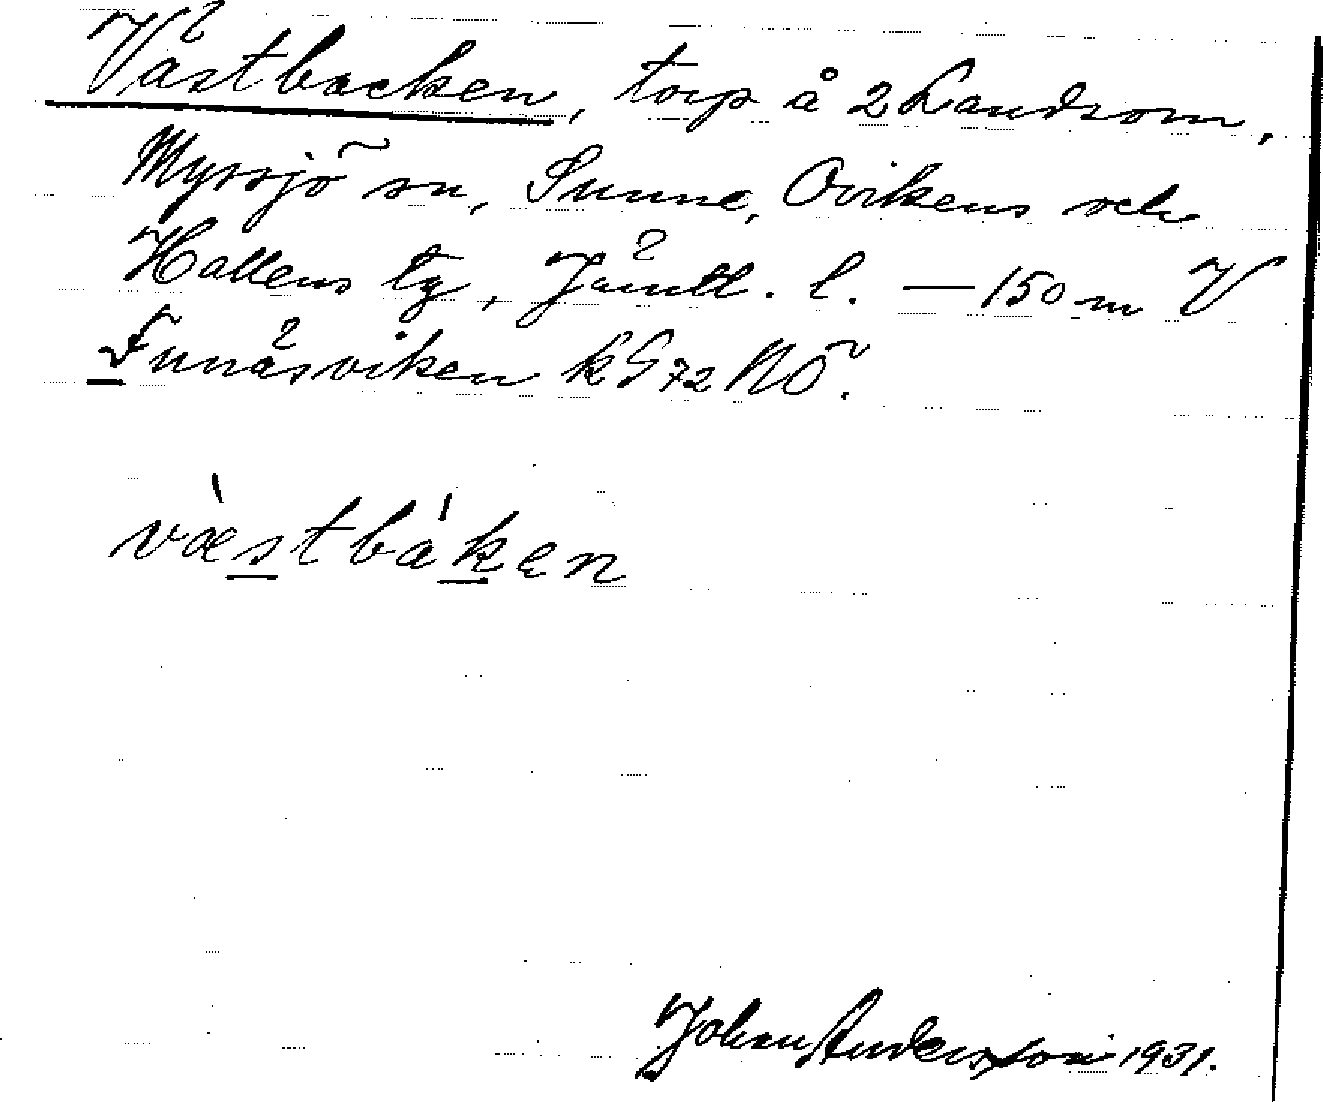 Västbacken, torp å 2 Landsom,
Myssjö sn, Sunne, Ovikens och
Hallens tg, Jämtl. l. — 150 m V
Funäsviken kG 72 NÖ.
væstbàken
Johan Andersson 1931.